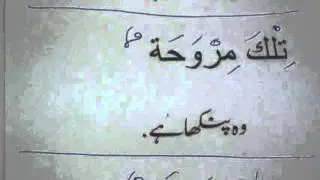 تِلْكَ مِرْوَحَة
وہ پنکھا ہے۔